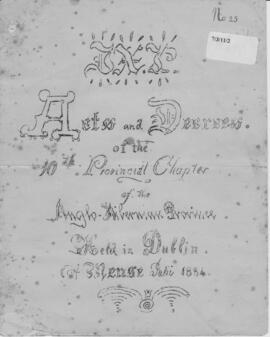 No 25
J.X.P.
Acts and Decrees.
of the
10th Provincial Chapter
of the
Anglo-Hibernian Province
Held in Dublin.
Mense Julii 1884.